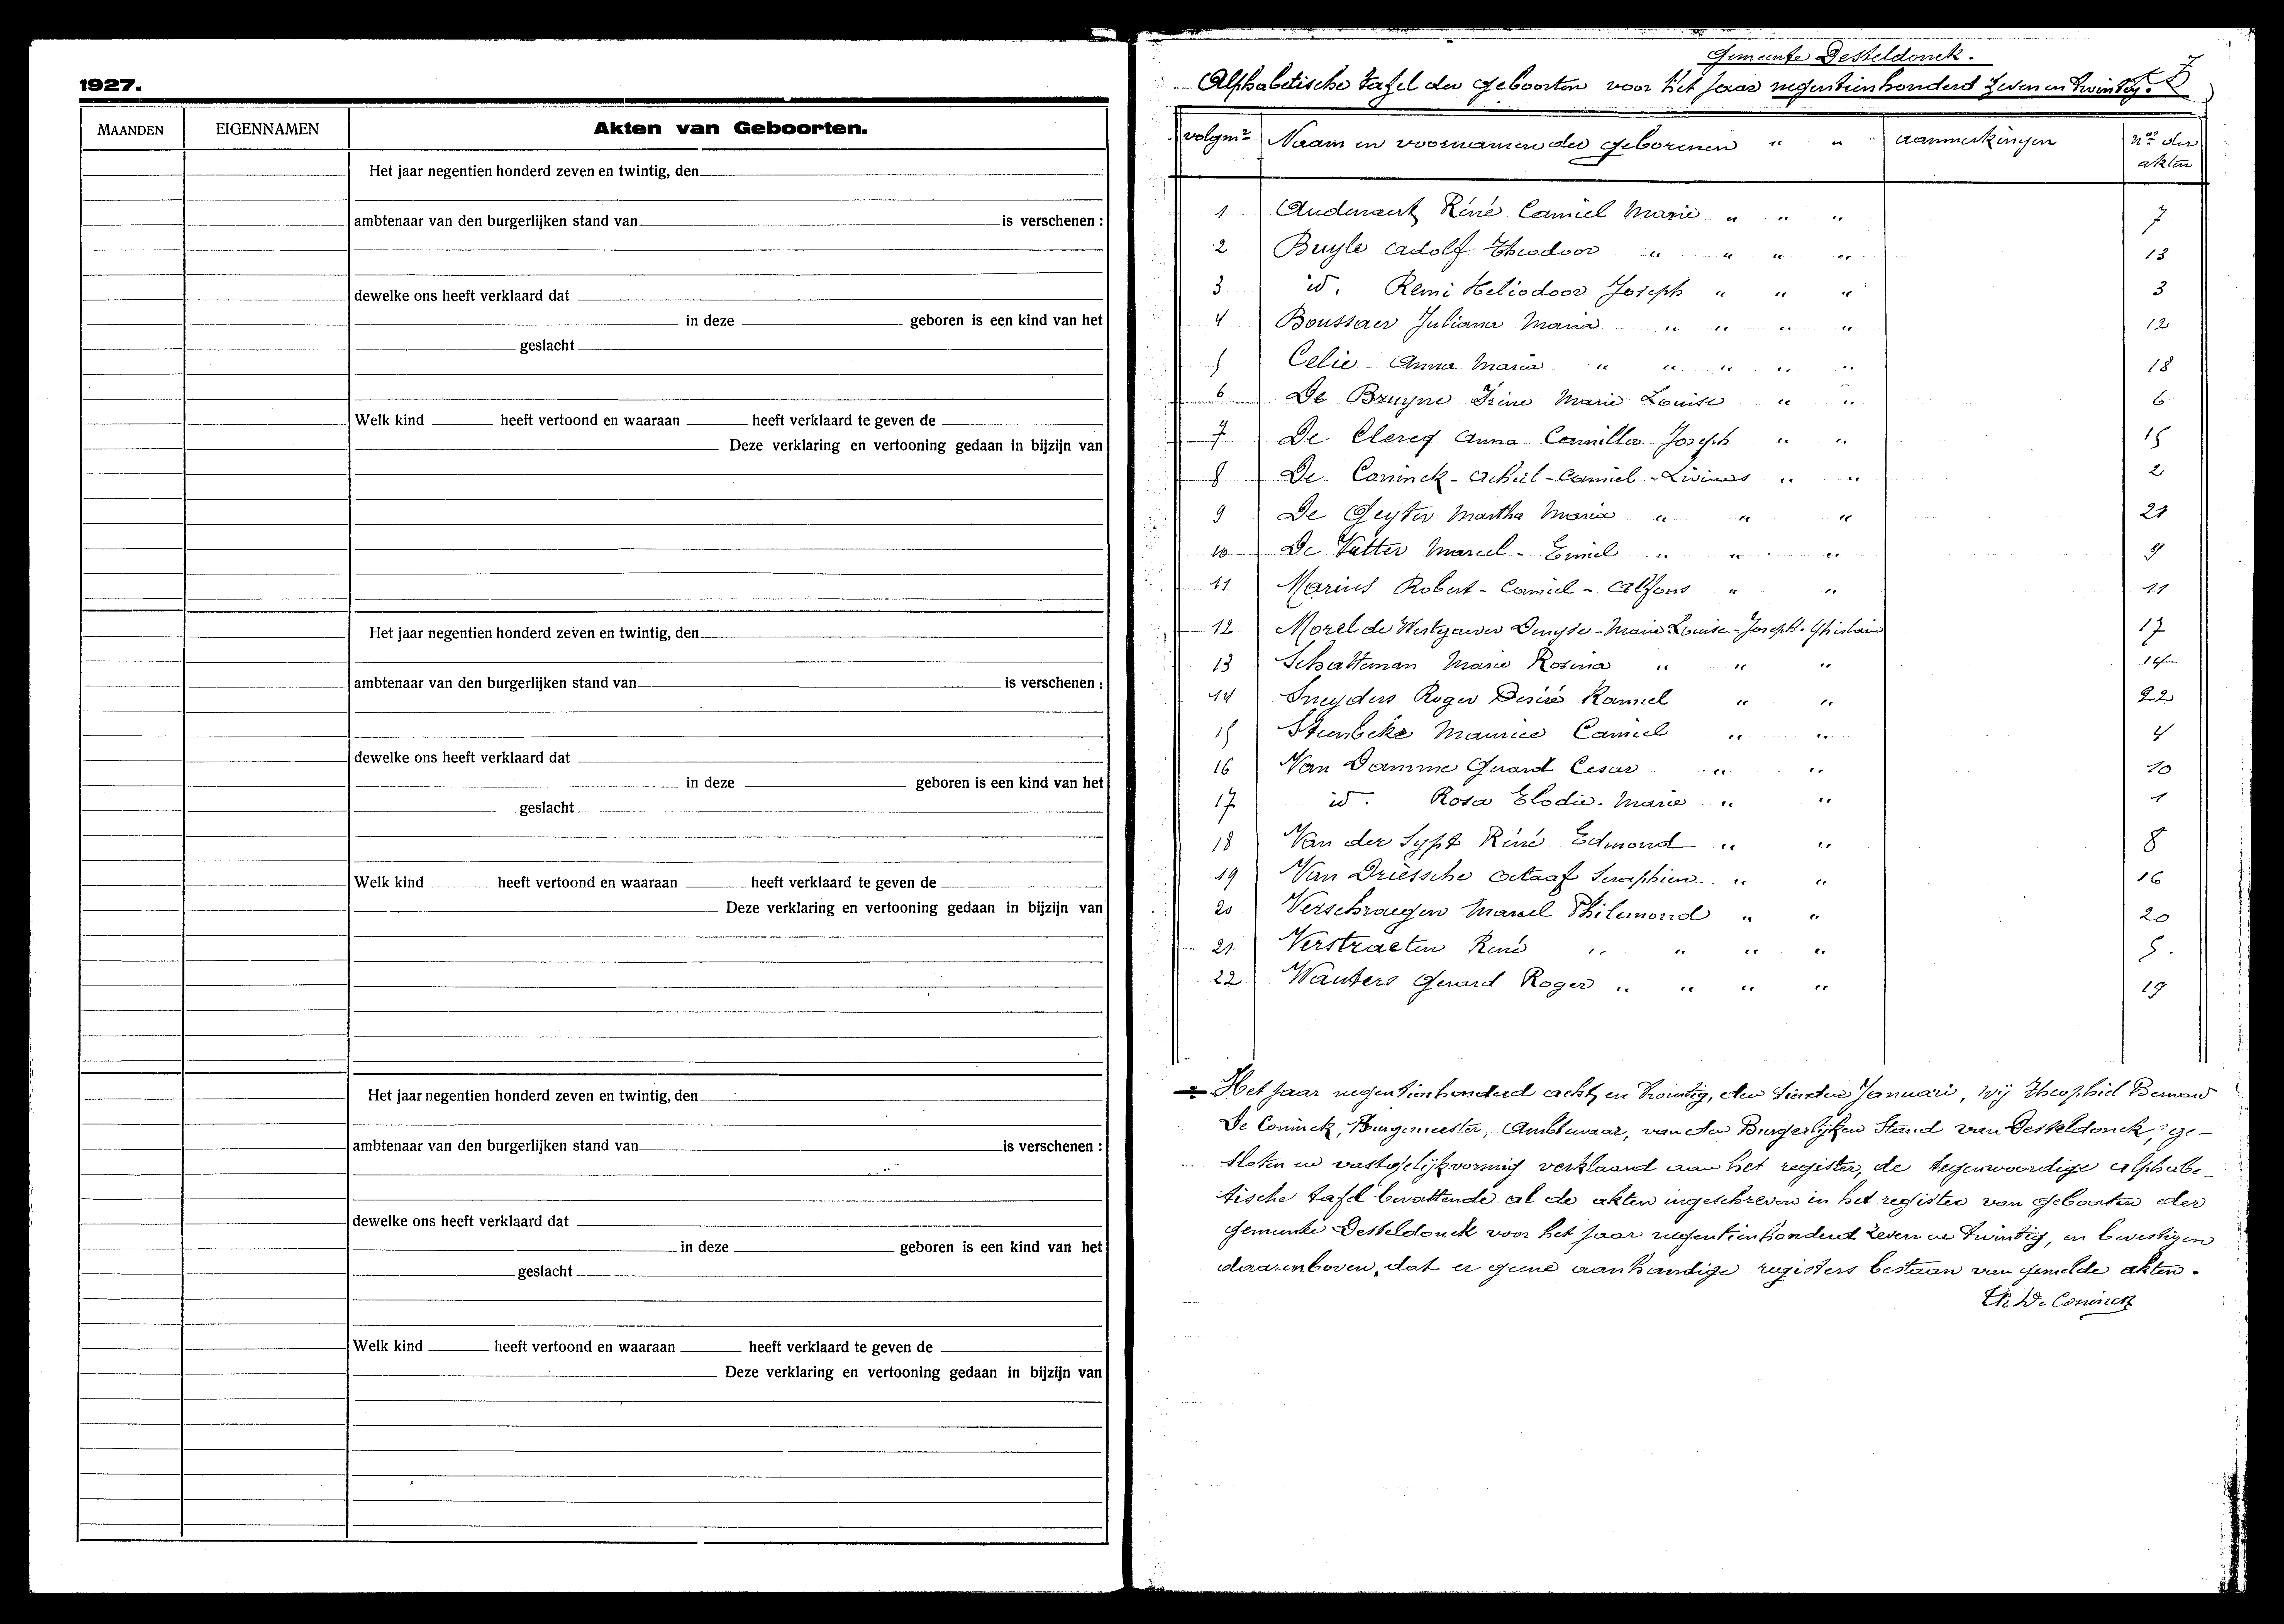 1927.
MAANDEN EIGENNAMEN Akten van Geboorten.
Het jaar negentien honderd zeven en twintig, den
ambtenaar van den burgerlijken stand van is verschenen :
dewelke ons heeft verklaard dat
in deze geboren is een kind van het
geslacht
Welk kind heeft vertoond en waaraan heeft verklaard te geven de
Deze verklaring en vertooning gedaan in bijzijn van
Het jaar negentien honderd zeven en twintig, den
ambtenaar van den burgerlijken stand van is verschenen :
dewelke ons heeft verklaard dat
in deze geboren is een kind van het
geslacht
Welk kind heeft vertoond en waaraan heeft verklaard te geven de
Deze verklaring en vertooning gedaan in bijzijn van
Het jaar negentien honderd zeven en twintig, den
ambtenaar van den burgerlijken stand van is verschenen :
dewelke ons heeft verklaard dat
in deze geboren is een kind van het
geslacht
Welk kind heeft vertoond en waaraan heeft verklaard te geven de
Deze verklaring en vertooning gedaan in bijzijn van
Gemeente Desteldonck.
Alphabetische tafel der geboorten voor het jaar negentienhonderd zeven en twintig.
volgnr Naam en voornamen der geborenen " " aanmerkingen nos der
akten
1 Audenaert René Camiel Marie " " " 7
2 Buyle Adolf Theodoor " " " " 13
3 id. Remi Heliodoor Joseph " " " 3
4 Boussaer Juliana Maria " " " " 12
5 Celie Anna Maria " " " " " 18
6 De Bruyne Irène Marie Louise " " 6
7 De Clercq Anna Camilla Joseph " " 15
8 De Coninck-Achiel-Camiel-Livinus " " 2
9 De Geyter Martha Maria " " " 21
10 De Vatter Marcel - Emiel " " " 9
11 Marius Robert - Camiel - Alfons " " 11
12 Morel de Westgaver Denyse-Marie Louise-Joseph-Ghislain 17
13 Schatteman Marie Rosina " " " 14
14 Sneyders Roger Desiré Kamiel " " 22
15 Steenbeke Maurice Camiel " " 4
16 Van Damme Gerard Cesar " " 10
17 id. Rosa Elodie Marie " " 1
18 Van der Sypt René Edmond " " 8
19 Van Driessche Octaaf Seraphien " " 16
20 Verschraegen Marcel Philemond " " 20
21 Verstraeten René " " " " 5.
22 Wauters Gerard Roger " " " " 19
Het jaar negentienhonderd acht en twintig, den tienden Januari, Wij Theophiel Bernard
De Coninck, Burgemeester, Ambtenaar, van den Burgerlijken Stand van Desteldonck, ge-
sloten en vastgelijkvormig verklaard aan het register, de tegenwoordige alphabe-
tische tafel bevattende al de akten ingeschreven in het register van geboorten der
gemeente Desteldonck voor het jaar negentienhonderd zeven en twintig, en bevestigen
daarenboven, dat er geene aanhandige registers bestaan van gemelde akten.
Th De Coninck